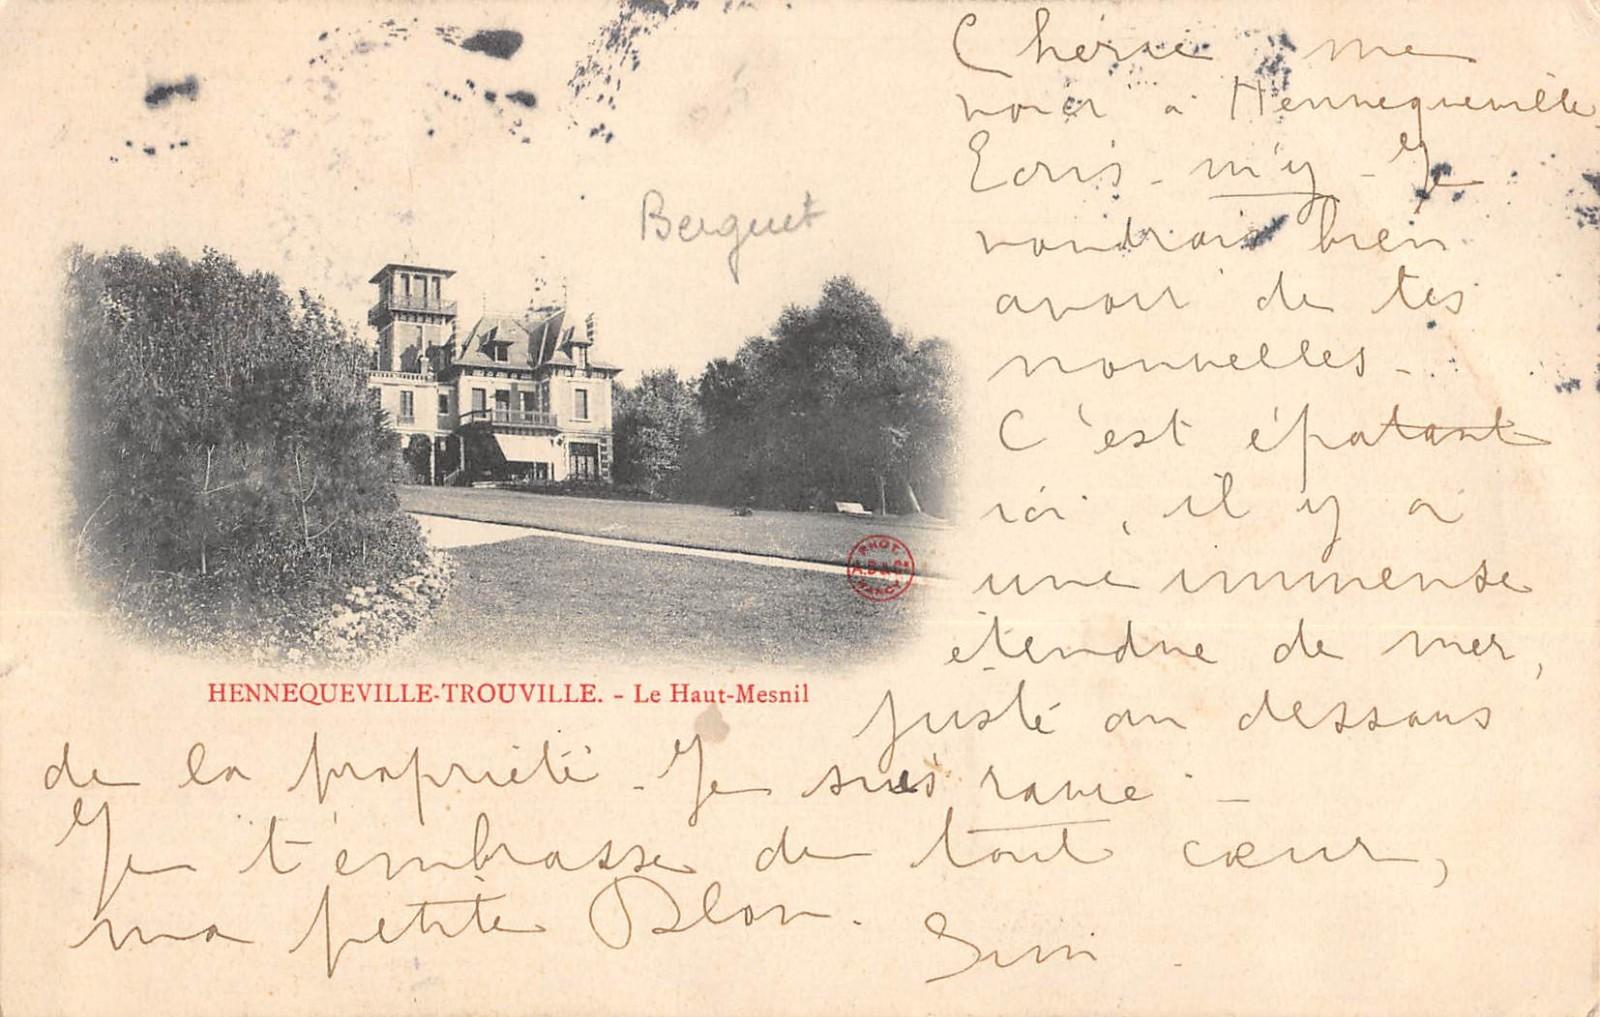 Chérie me
voici à Hennequeville
Ecris-m'y - Je
voudrais bien
avoir de tes
nouvelles -
C'est épatant
ici, il y a
une immense
étendue de mer,
juste au dessous
de la propriété - Je suis ravie -
Je t'embrasse de tout cœur,
ma petite
Berguet
PHOT.
NANCY
HENNEQUEVILLE-TROUVILLE. - Le Haut-Mesnil